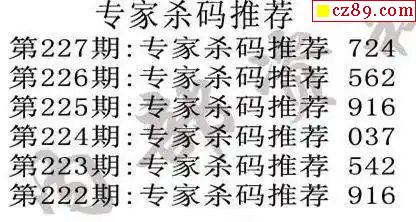 专家杀码推荐
cz89.com
第227期:专家杀码推荐 724
第226期:专家杀码推荐 562
第225期:专家杀码推荐 916
第224期:专家杀码推荐 037
第223期:专家杀码推荐 542
第222期:专家杀码推荐 916